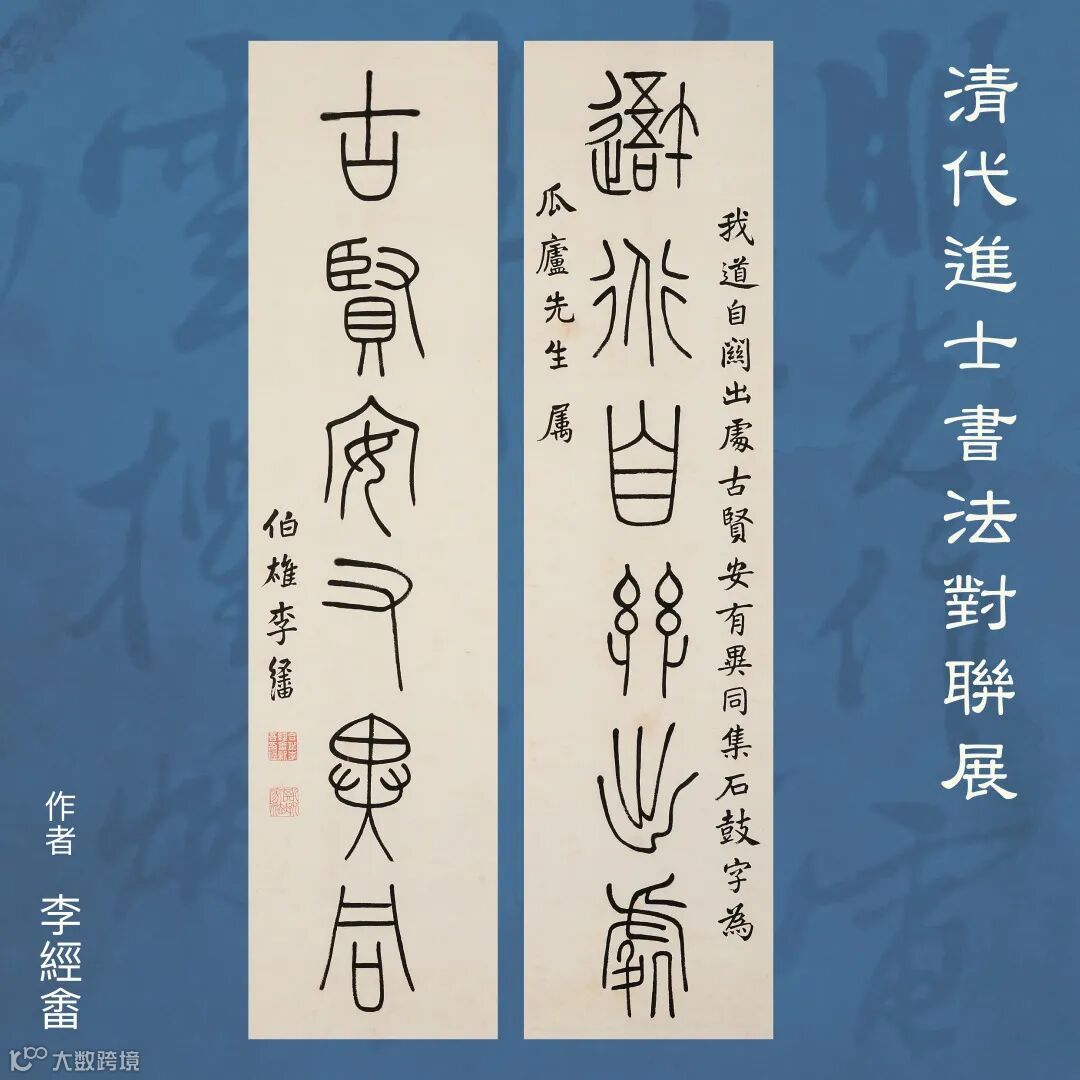 清代進士書法對聯展
我道自關出處古賢安有異同集石鼓字為
我道自關出處
瓜廬先生 属
古賢安有異同
伯雄李
作者 李經畬
大数跨境